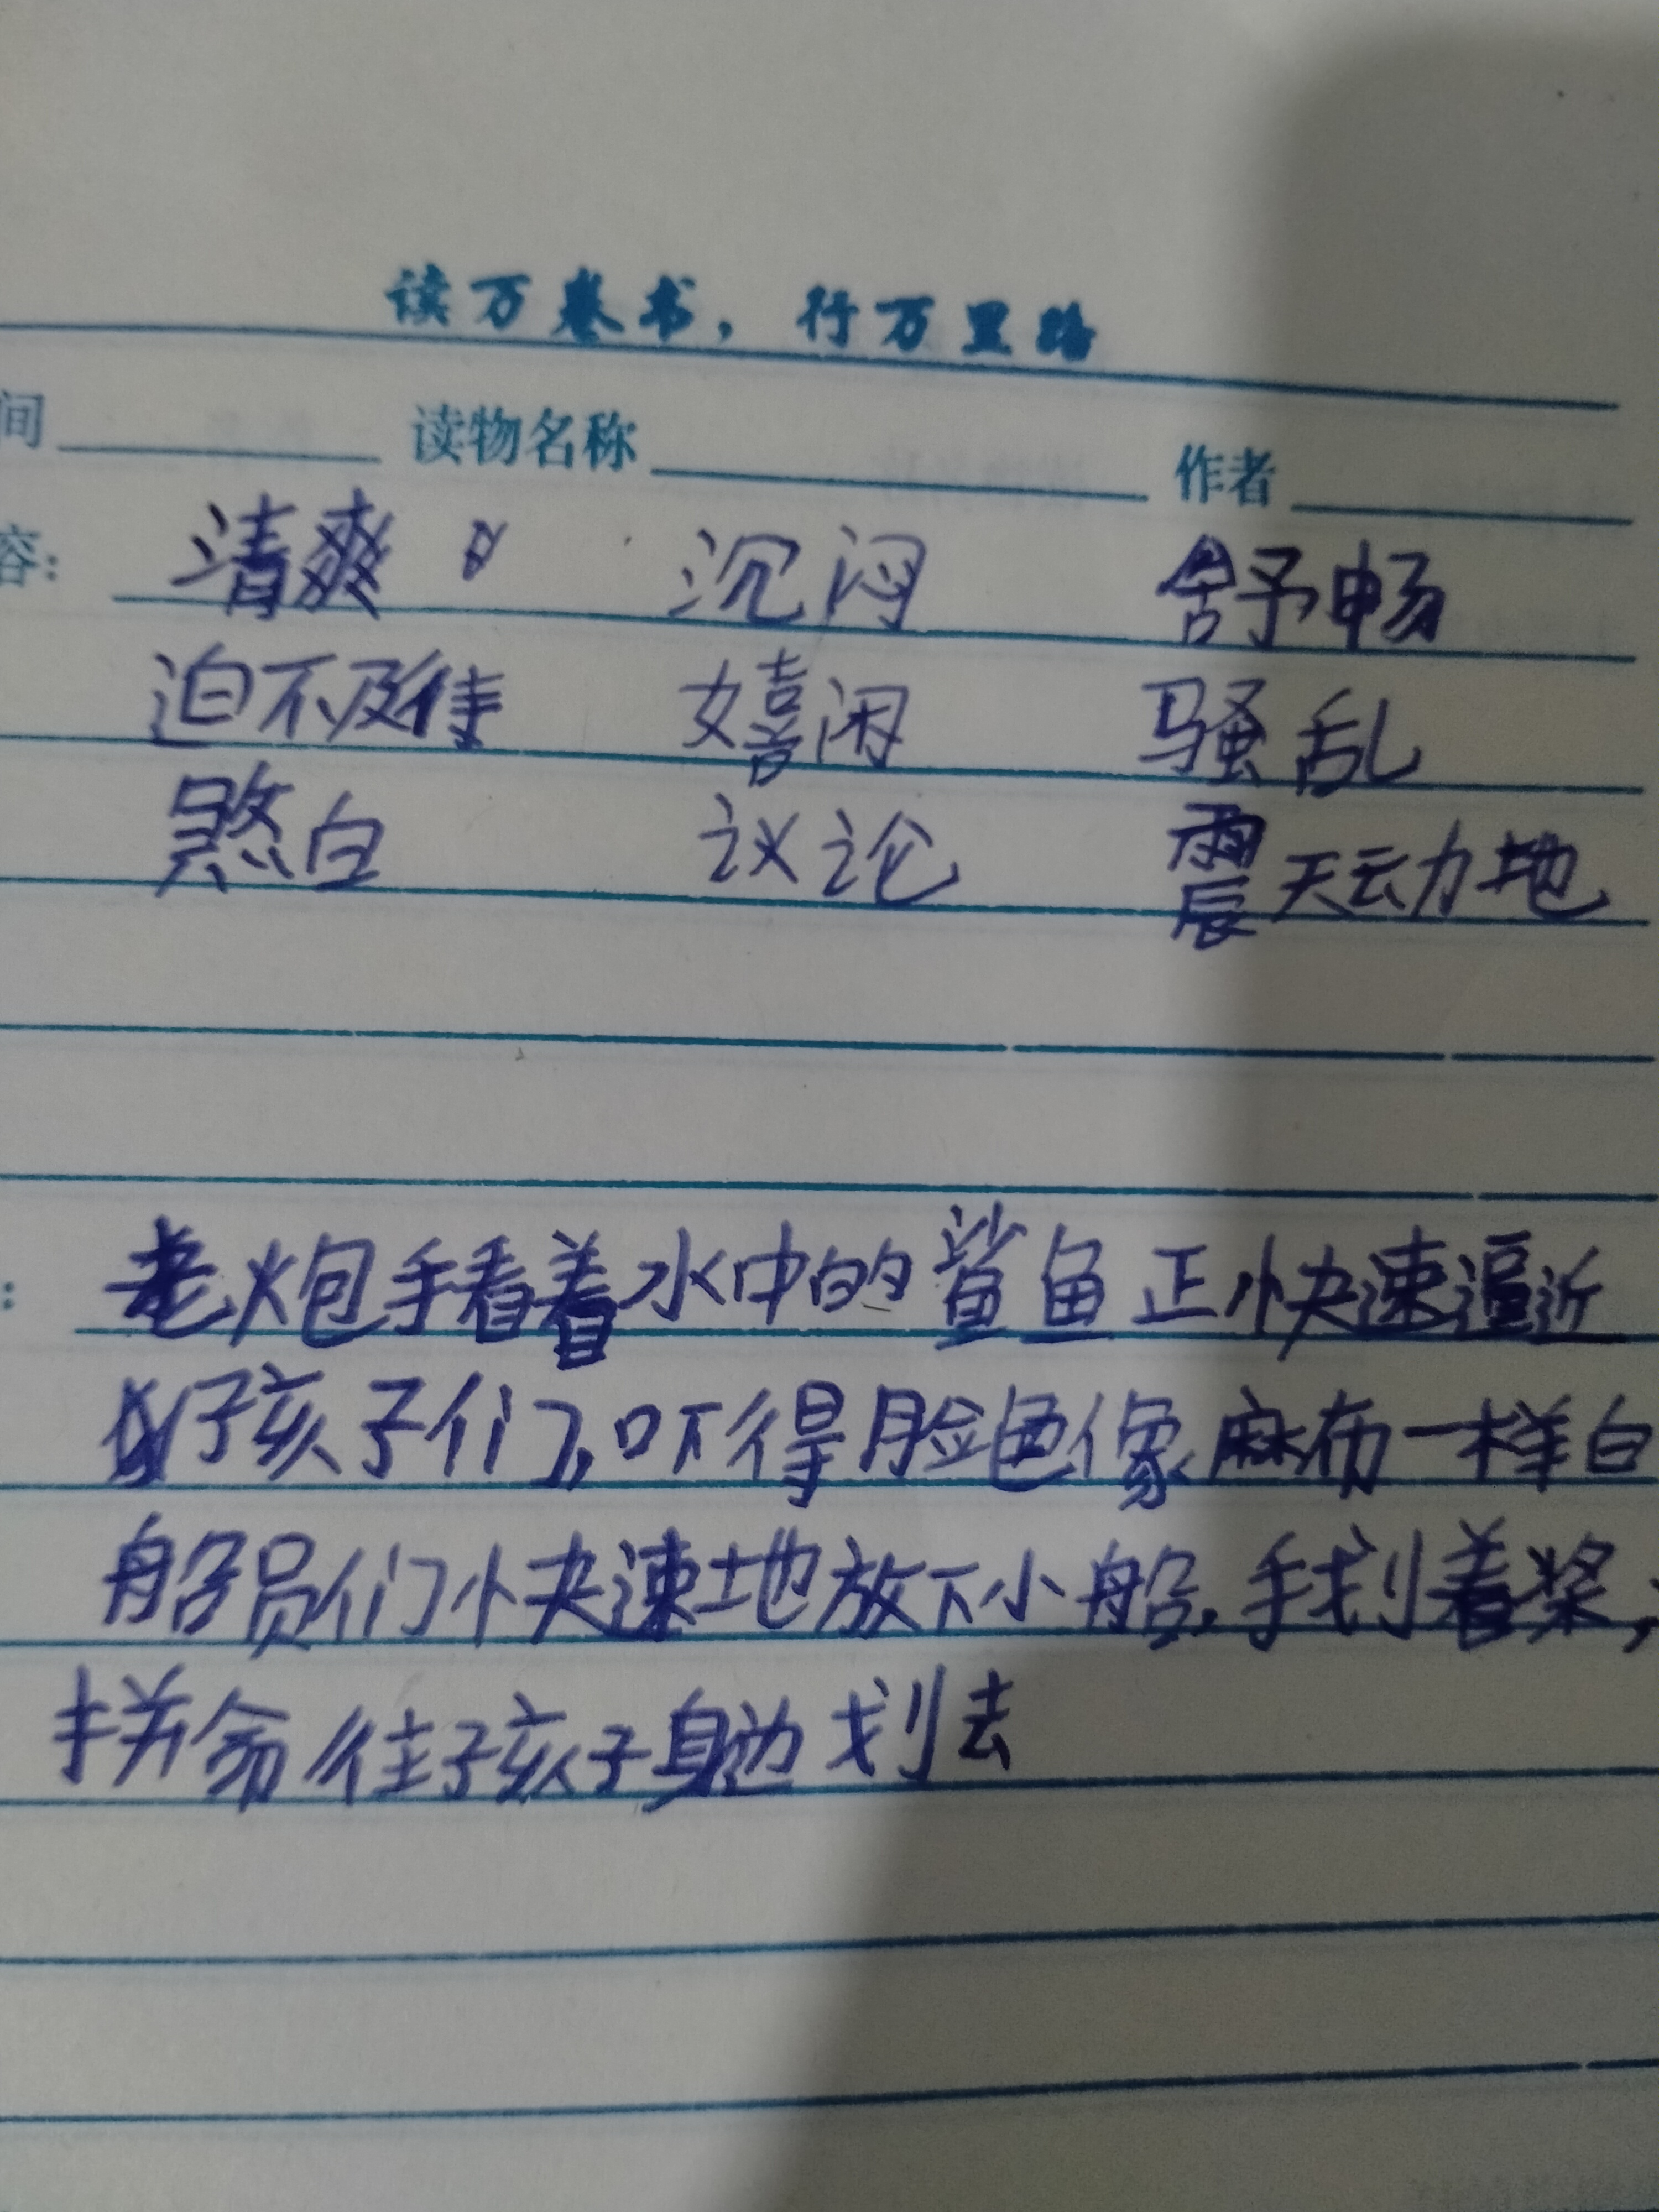 读万卷书，行万里路
间 读物名称 作者
容： 清爽 沉闷 舒畅
迫不及待 嬉闹 骚乱
煞白 议论 震天动地
： 老炮手看着水中的鲨鱼正快速逼近
孩子们，吓得脸色像麻布一样白
船员们快速地放下小船，手划着桨，
拼命往孩子身边划去